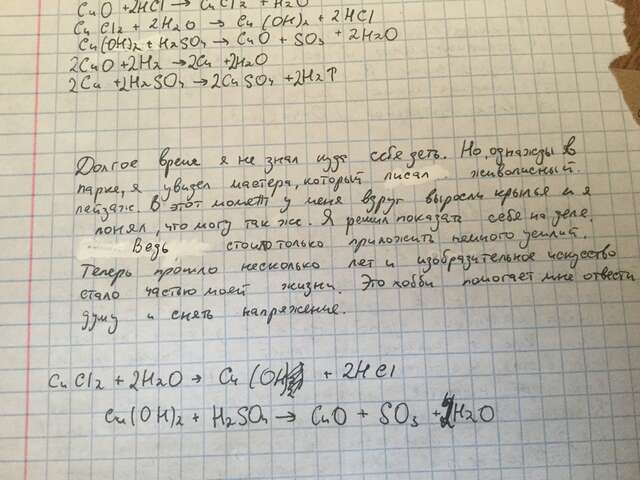 CuO + 2HCl → CuCl2 + H2O
CuCl2 + 2H2O → Cu(OH)2 + 2HCl
Cu(OH)2 + H2SO4 → CuO + SO3 + 2H2O
2CuO + 2H2 → 2Cu + 2H2O
2Cu + 2H2SO4 → 2CuSO4 + 2H2↑
Долгое время я не знал куда себя деть. Но, однажды в
парке, я увидел мастера, который писал живописный
пейзаж. В этот момент у меня вдруг выросли крылья и я
понял, что могу так же. Я решил показать себя на деле.
Ведь стоило только приложить немного усилий.
Теперь прошло несколько лет и изобразительное искусство
стало частью моей жизни. Это хобби помогает мне отвести
душу и снять напряжение.
CuCl2 + 2H2O → Cu(OH)2 + 2HCl
Cu(OH)2 + H2SO4 → CuO + SO3 + 2H2O